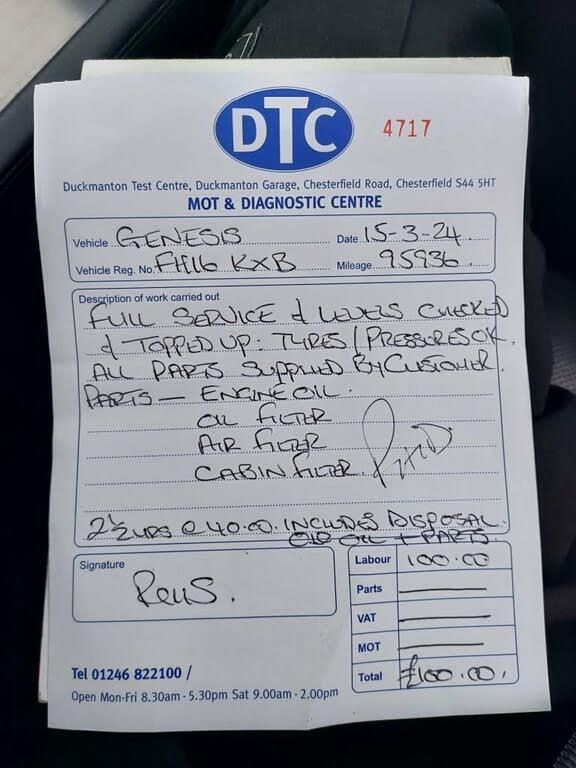 DTC
4717
Duckmanton Test Centre, Duckmanton Garage, Chesterfield Road, Chesterfield S44 5HT
MOT & DIAGNOSTIC CENTRE
Vehicle GENESIS Date 15-3-24
Vehicle Reg. No. FH16 KXB Mileage 95936
Description of work carried out
FULL SERVICE & LEVELS CHECKED
& TOPPED UP. TYRES / PRESSURES OK.
ALL PARTS SUPPLIED BY CUSTOMER.
PARTS — ENGINE OIL.
OIL FILTER
AIR FILTER
CABIN FILTER
2½ HRS @ 40.00. INCLUDES DISPOSAL
OLD OIL + PARTS.
Signature
Labour 100.00
Parts
VAT
MOT
Total £100.00.
Tel 01246 822100 /
Open Mon-Fri 8.30am - 5.30pm Sat 9.00am - 2.00pm